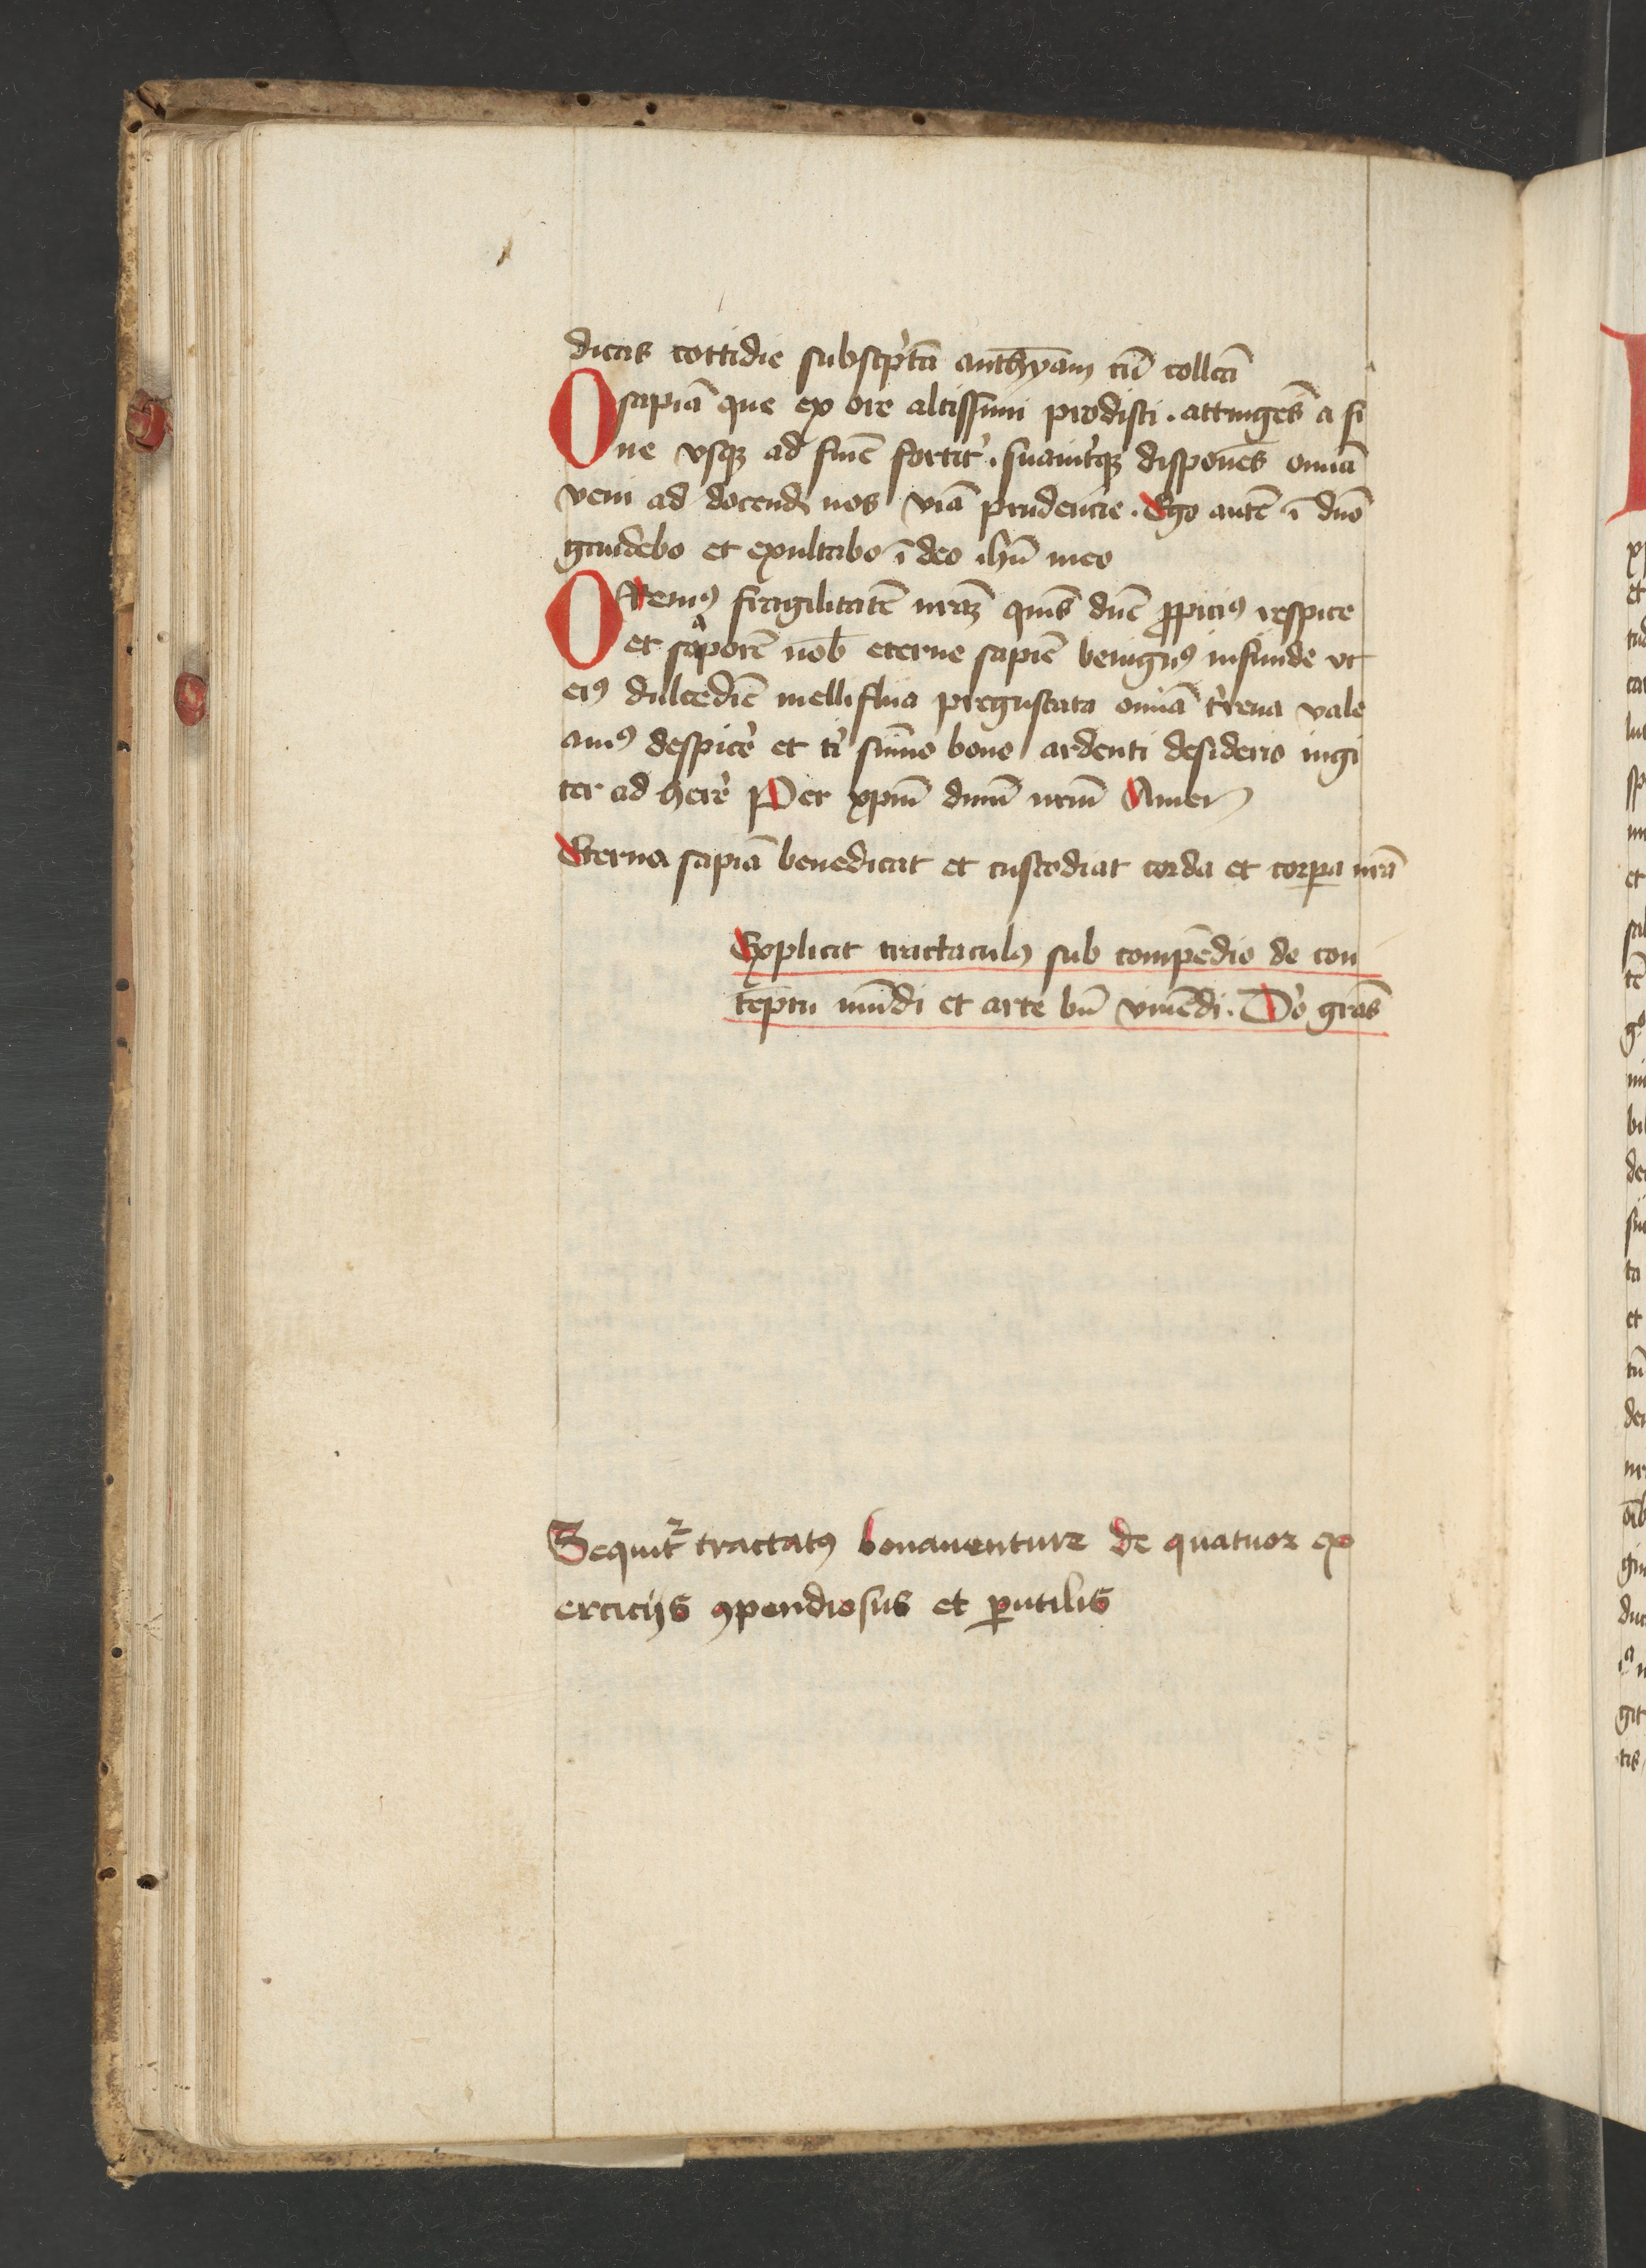 dicas cottidie subscp̾tā anthyām cū collcā
O sapiā que ex ore altissimi prodisti . attingēs a fi
ne vsqꝫ ad finē fortit̾ . suauit̾qꝫ disponēs omīa
veni ad docend̄ nos viā prudencie . Ego autē ī dno
gaudebo et exultabo ī deo ihū meo
ORemꝰ fragilitatē nrāꝫ qm̄s dne ꝓpiciꝰ respice
et saporē nob̄ eterne sapiē benignꝰ infunde vt
eiꝰ dulcedīe melliflua pregustata omīa t̾rena vale
amꝰ despicē et ti̾ sūmo bono ardenti desiderio iugi
ter ad herē Per xp̄m dnm̄ nrm̄ Amen
Eterna sapiā benedicat et custodiat corda et corꝑa nrā
Explicit tractaculꝰ sub compēdio de con
teptu mūdi et arte bn̄ viuēdi . Do̾ gras̄
Sequit̾ tractatꝰ bonauenture de quatuor ex
ercicijs ꝯpendiosus et ꝑutilis